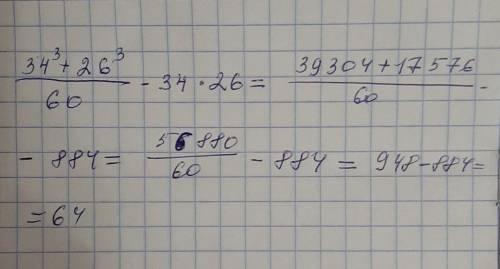 (34³ + 26³)/60 - 34 · 26 = (39304 + 17576)/60 -
- 884 = 56880/60 - 884 = 948 - 884 =
= 64